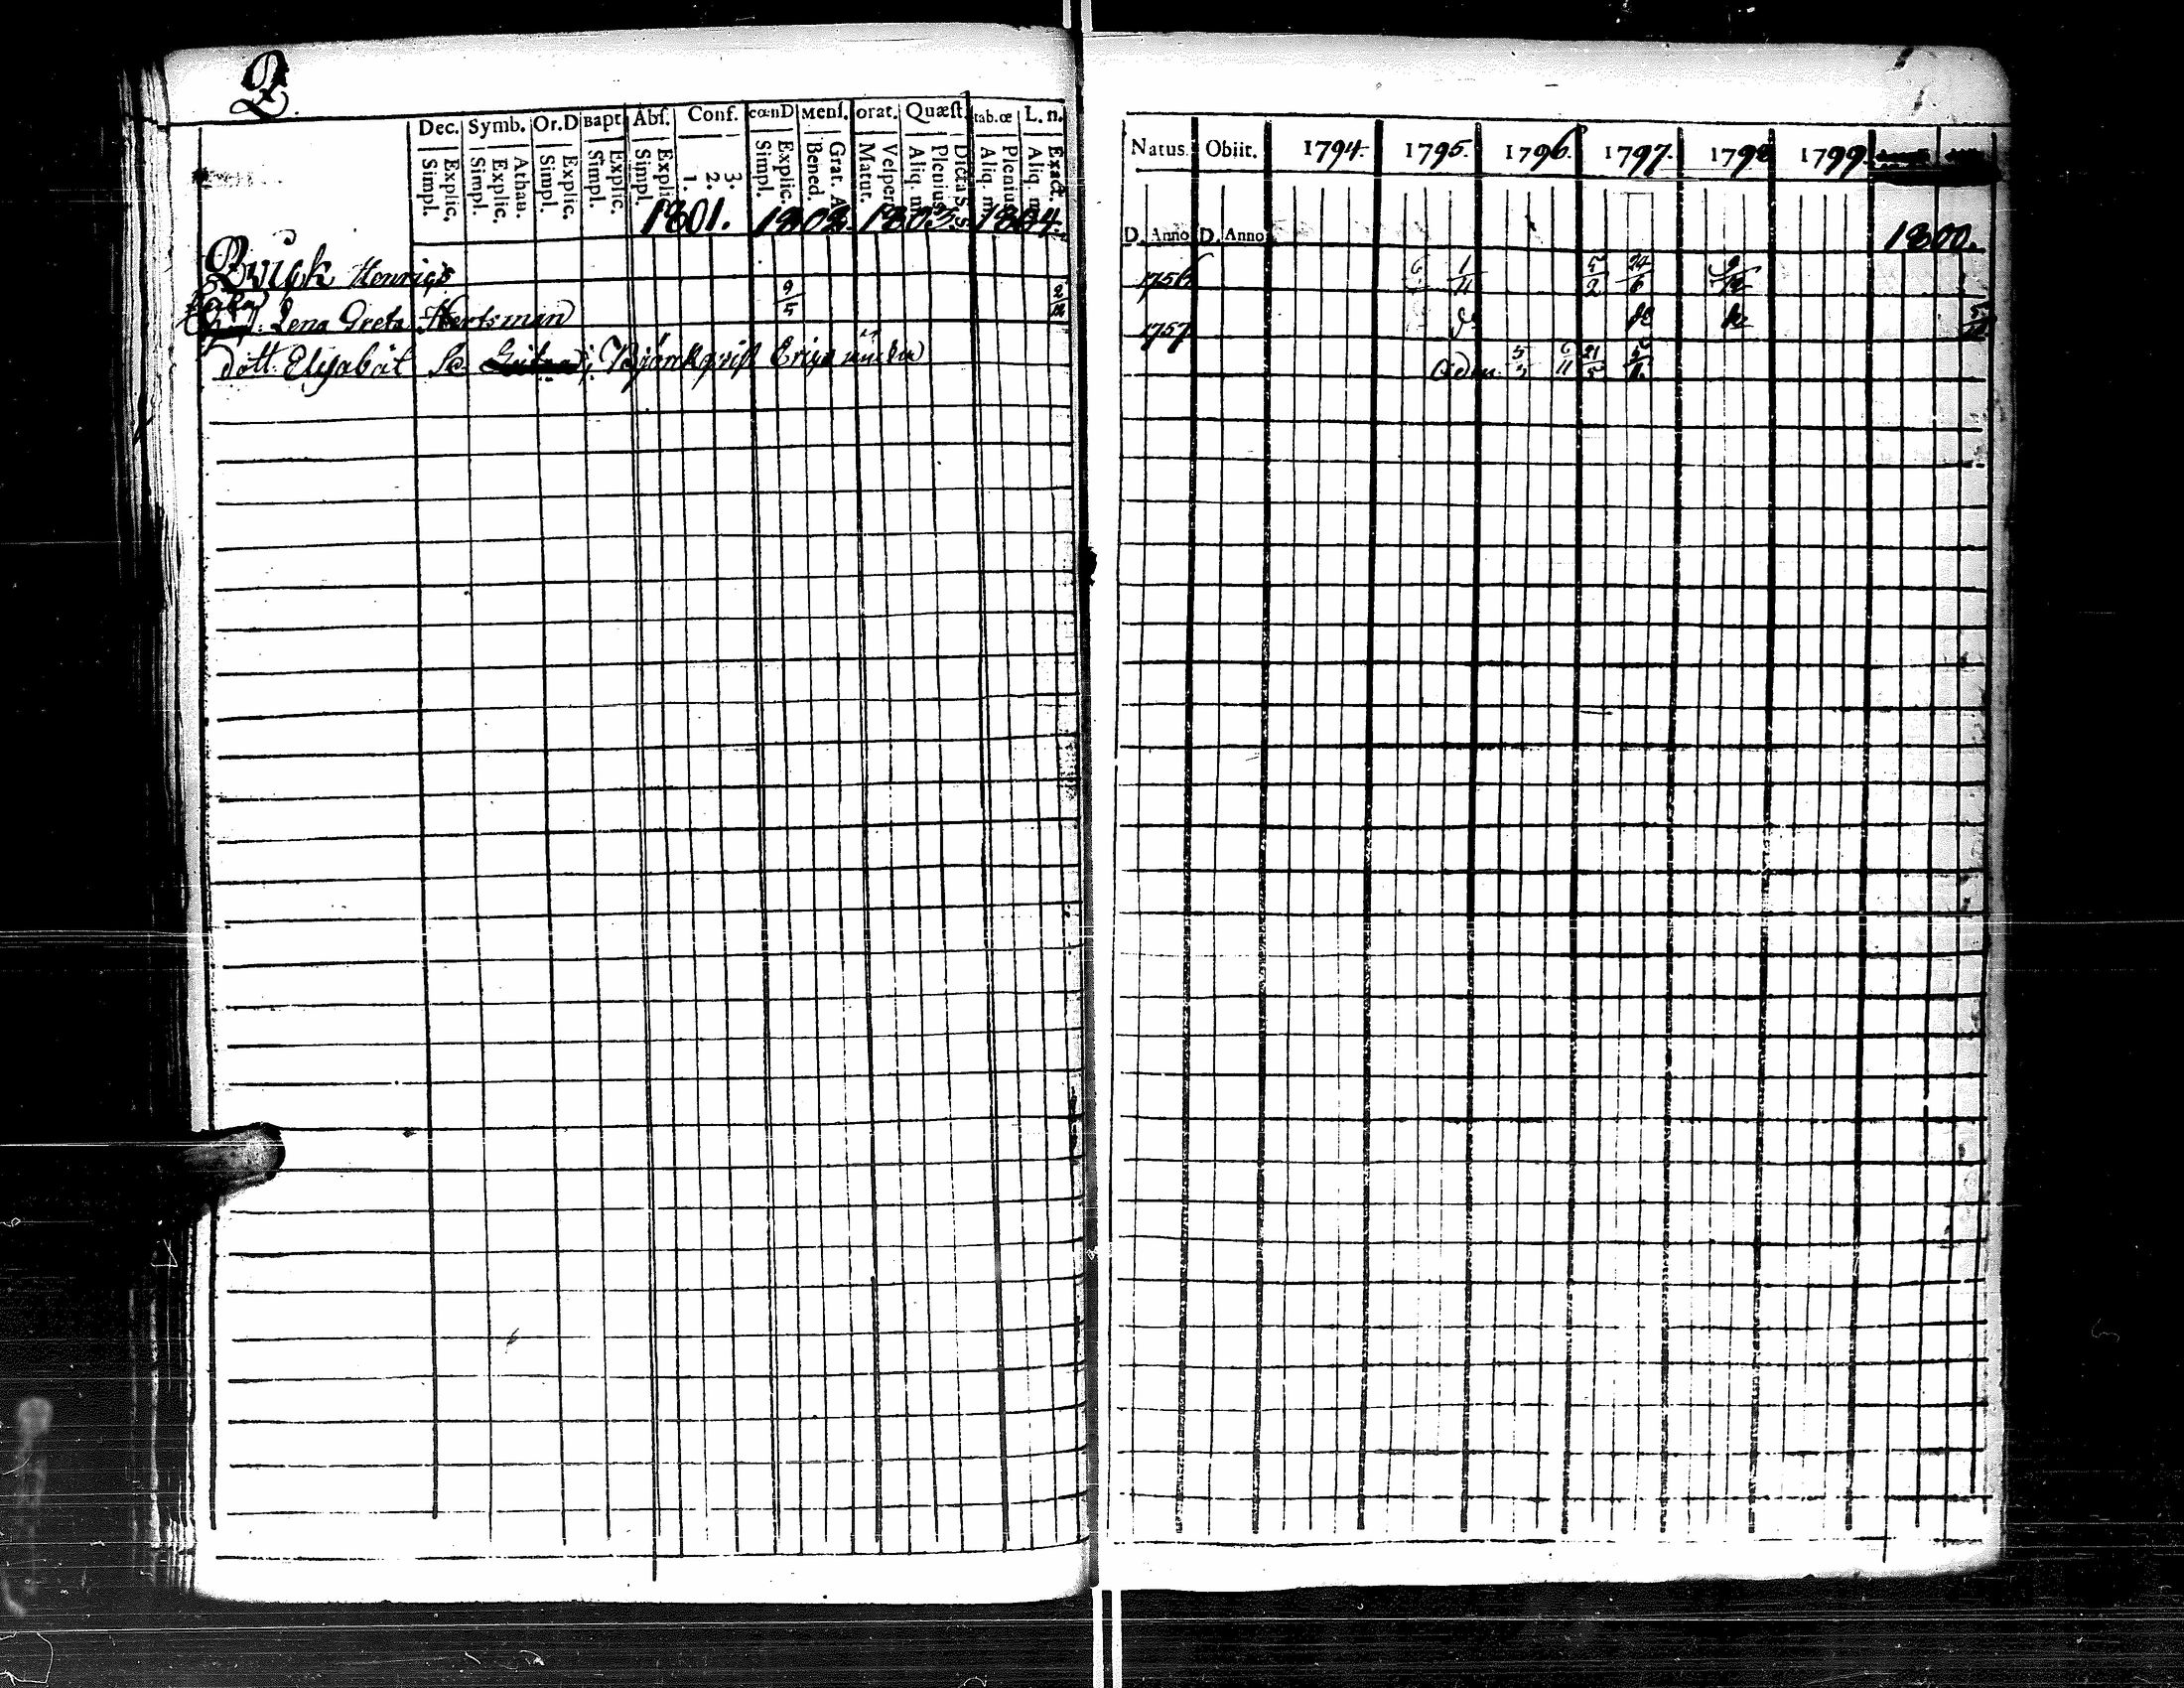 Q.
Dec. Symb. Or.D Bapt. Abſ. Conf. cœnD Menſ. orat. Quæſt. tab.œ L. n.
Simpl. Explic. Simpl. Explic. Athan. Simpl. Explic. Simpl. Explic. Simpl. Explic. 1. 2. 3. Simpl. Explic. Bened. Grat. A Matut. Veſpert Aliq. m Plenius Dicta S. S. Aliq. m Plenius Aliq. m Exact.
1801. 1802. 1803. 1804.
Qvick Henric
9/5 2/12
Lena Greta Hertsman
dott. Elisabät Björkqvist Erics
Natus. Obiit. 1794. 1795. 1796. 1797. 1798 1799.
D. Anno D. Anno 1800.
1756 6 1/11 5/2 24/6 9/12
1757 do do do
5 6/11 21/5